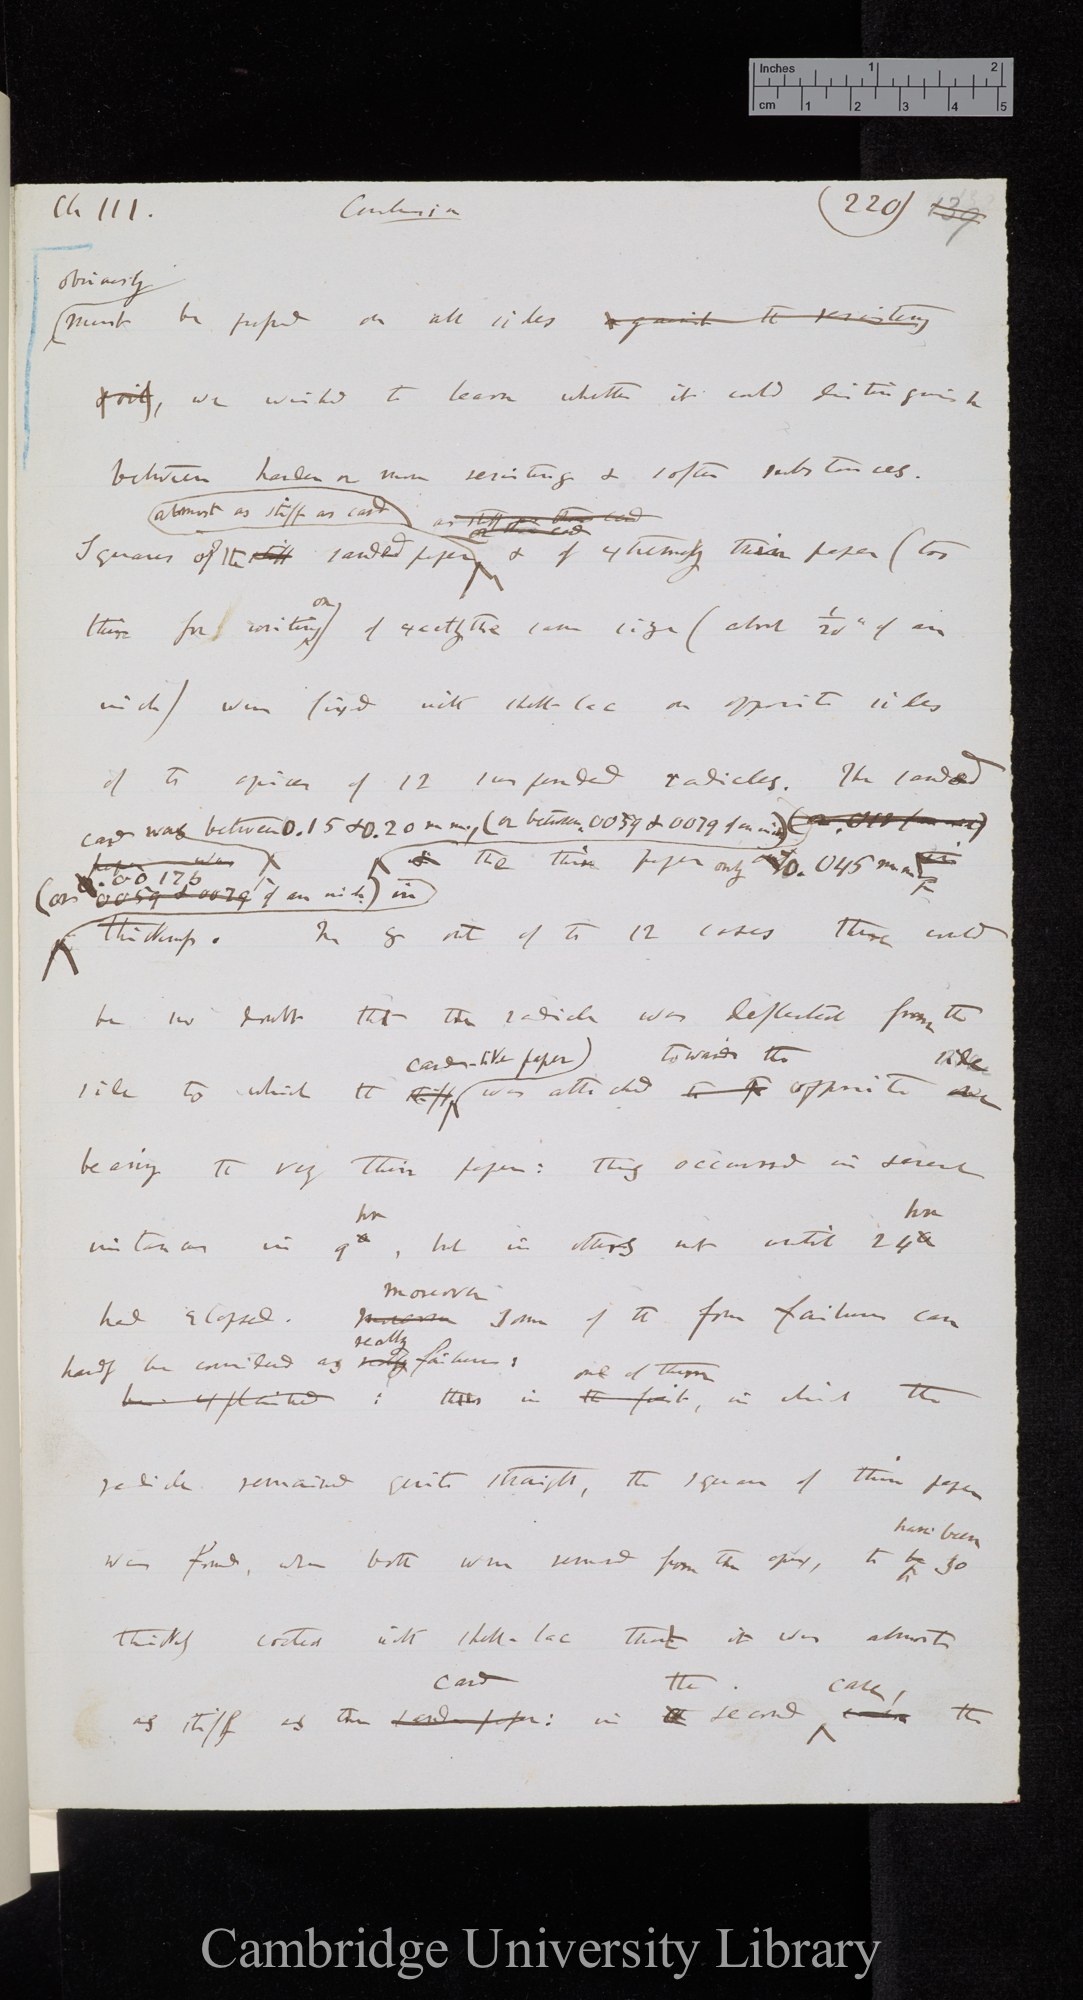 Inches 1 2
cm 1 2 3 4 5
Ch III. Conclusion (220) 139
obviously
(must be pressed on all sides against the resisting
soil), we wished to learn whether it could distinguish
between harder or more resisting & softer substances.
almost as stiff as card as stiff as thin card
Squares of the stiff sanded paper & of extremely thin paper (too
thin for writing on) of exactly the same size (about 1/20" of an
inch) were fixed with shell-lac on opposite sides
of the apices of 12 suspended radicles. The sanded
card was between 0.15 & 0.20 mm, (or between .0059 & .0079 of an inch)
paper was & the thin paper only 0.045 mm
(or .00176 .0059 & .0079 of an inch) in
thickness. In 8 out of the 12 cases there could
be no doubt that the radicle was deflected from the
card-like paper) towards the side
side to which the stiff was attached to the opposite one
bearing the very thin paper: this occurred in several
hrs hrs
instances in 9h, but in others not until 24h
moreover
had elapsed. Moreover Some of the four failures can
hardly be considered as really really failures:
be explained : thus in one of them the first, in which the
radicle remained quite straight, the square of thin paper
have been
was found, when both were removed from the apex, to be so
thickly coated with shell-lac that it was almost
card the case,
as stiff as the sanded paper: in the second the
Cambridge University Library